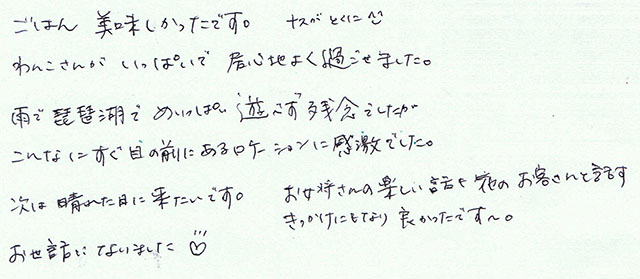 ごはん 美味しかったです。 ナスがとくに
わんこさんが いっぱいで 居心地よく過ごせました。
雨で琵琶湖で めいっぱい遊べず残念でしたが
こんなにすぐ目の前にあるロケーションに感激でした。
次は晴れた日に来たいです。
お世話になりました♡
お女将さんの楽しい話も他のお客さんと話す
きっかけにもなり良かったです〜。